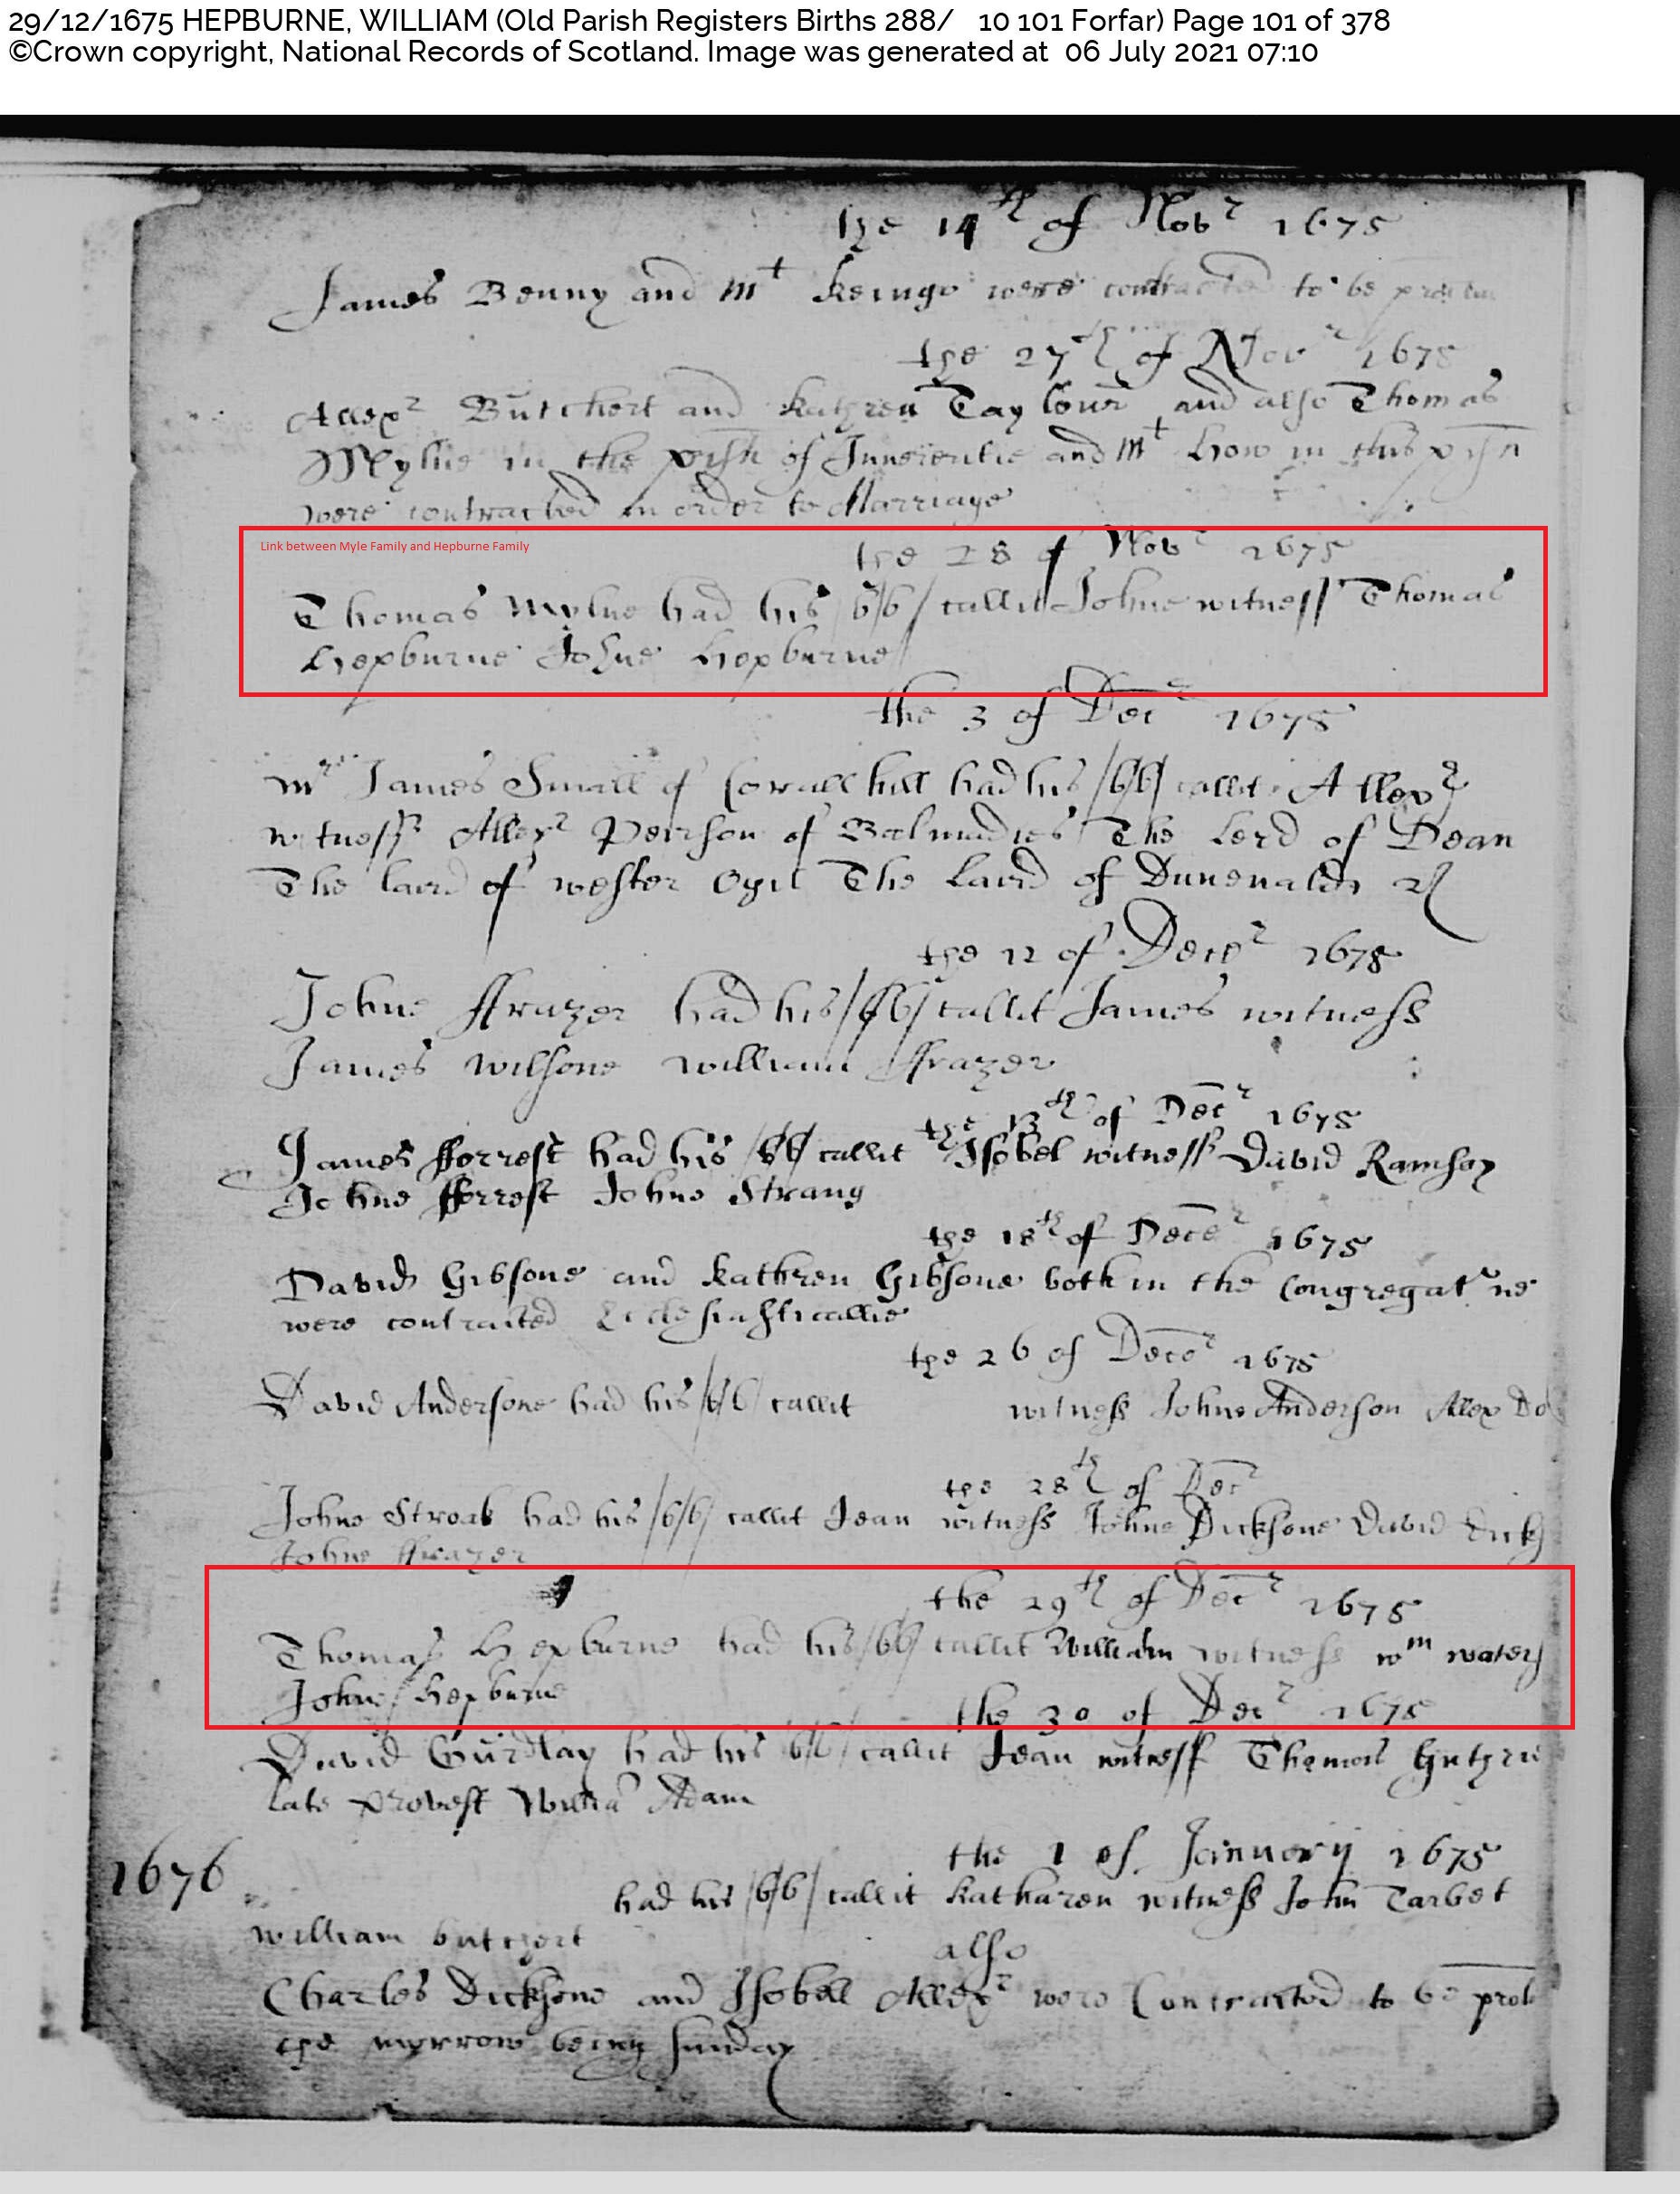 29/12/1675 HEPBURNE, WILLIAM (Old Parish Registers Births 288/ 10 101 Forfar) Page 101 of 378
©Crown copyright, National Records of Scotland. Image was generated at 06 July 2021 07:10
the 14th of Nobr 1675
James Benny and Mt were contracted to be
the 27th of Novr 1675
Allexr Butchert and Kathren Taylour and also Thomas
Mylne in the prsh of and Mt how in this prsh
were contracted in order to Marriage
Link between Myle Family and Hepburne Family
the 28 of Nobr 1675
Thomas Mylne had his /bb/ callit Johne witness Thomas
hepburne Johne hepburne
the 3 of Decr 1675
Mr James Small of hill had his /bb/ callit Allexr
witness Allexr Peirson of Balmadies The Lerd of Dean
The laird of wester Ogil The Laird of
the 12 of Decer 1675
Johne ffrazer had his /bb/ callit James witness
James wilsone william ffrazer
the 13th of Decr 1675
James fforrest had his /bb/ callit Isobel witness David Ramsay
Johne fforrest Johne Strang
the 18th of Decer 1675
David Gibsone and Kathren Gibsone both in the Congregatne
were contracted Ecclesiasticallie
the 26 of Decer 1675
David Andersone had his /bb/ callit witness Johne Anderson Allex Do
the 28th of Decr
Johne had his /bb/ callit Jean witness Johne Dicksone David Dick
Johne ffrazer
the 29th of Decr 1675
Thomas Hepburne had his /bb/ callit William witness wm
Johne hepburne
the 30 of Decr 1675
David had his /bb/ callit Jean witness Thomas Guthrie
late provest Willia Adam
1676
the 1 of January 1675
had his /bb/ callit Katharen witness John Tarbet
william butchert
also
Charles Dicksone and Isobell Allexr were Contracted to be
the morrow being sunday